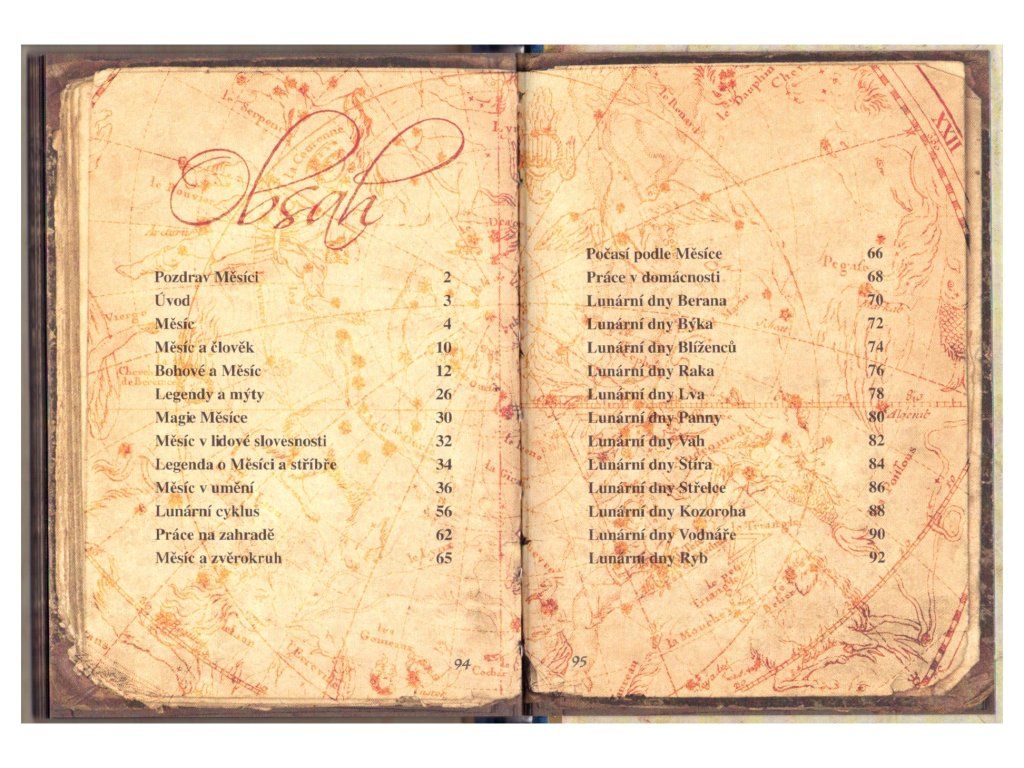 Obsah
Pozdrav Měsíci 2
Úvod 3
Měsíc 4
Měsíc a člověk 10
Bohové a Měsíc 12
Legendy a mýty 26
Magie Měsíce 30
Měsíc v lidové slovesnosti 32
Legenda o Měsíci a stříbře 34
Měsíc v umění 36
Lunární cyklus 56
Práce na zahradě 62
Měsíc a zvěrokruh 65
94
Počasí podle Měsíce 66
Práce v domácnosti 68
Lunární dny Berana 70
Lunární dny Býka 72
Lunární dny Blíženců 74
Lunární dny Raka 76
Lunární dny Lva 78
Lunární dny Panny 80
Lunární dny Vah 82
Lunární dny Štíra 84
Lunární dny Střelce 86
Lunární dny Kozoroha 88
Lunární dny Vodnáře 90
Lunární dny Ryb 92
95
XVII